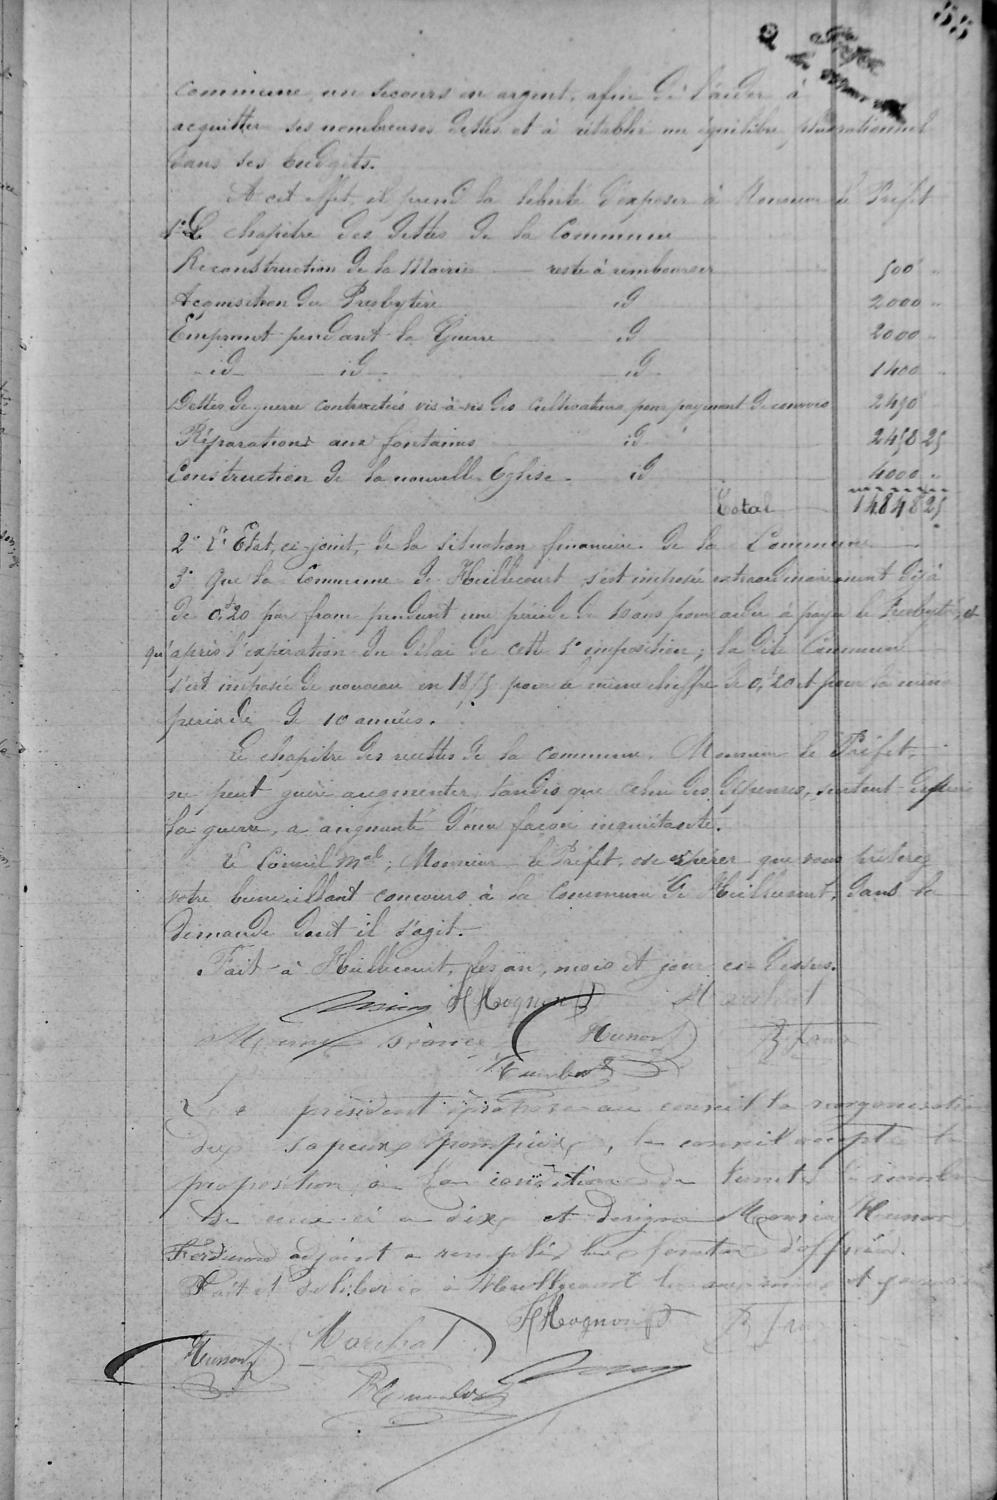 55
commune, un secours en argent, afin de l'aider à
acquitter ses nombreuses dettes et à rétablir un équilibre plus rationnel
dans ses budgets.
A cet effet, il prend la liberté d'exposer à Monsieur le Préfet
1° Le chapitre des dettes de la Commune
Reconstruction de la Mairie reste à rembourser 500 "
Acquisition du Presbytère id 2000 "
Emprunt pendant la Guerre id 2000 "
id id id 1400 "
Dettes de guerre contractées vis-à-vis des cultivateurs pour payement de convois 2490
Réparations aux fontaines id 2458 25
Construction de la nouvelle Eglise id 4000 "
Total 14848 25
2° L'Etat, ci-joint, de la situation financière de la Commune
3° Que la Commune de Huillécourt s'est imposée extraordinairement déjà
de 0f,20 par franc pendant une période de 10 ans pour aider à payer le Presbytère, et
qu'après l'expiration du délai de cette 1e imposition, la dite Commune
s'est imposée de nouveau en 1875 pour le même chiffre de 0f,20 et pour la même
période de 10 années.
Le chapitre des recettes de la commune, Monsieur le Préfet,
ne peut guère augmenter, tandis que celui des dépenses, surtout depuis
la guerre, a augmenté d'une façon inquiétante.
Le Conseil Mal, Monsieur le Préfet, ose espérer que vous prêterez
votre bienveillant concours à la Commune de Huillécourt, dans la
demande dont il s'agit.
Fait à Huillécourt, les an, mois et jour ci-dessus.
H Mognon Marchal
Humbert
Le président propose au conseil la réorganisation
des sapeurs pompiers, le conseil accepte la
proposition à la condition de limiter le nombre
de ceux ci a dix et designe Monsieur
Ferdinand adjoint a remplir les fonction d'officier.
Fait et délibéré à Huillécourt les an mois et jour
H Mognon
Marchal
Humbert